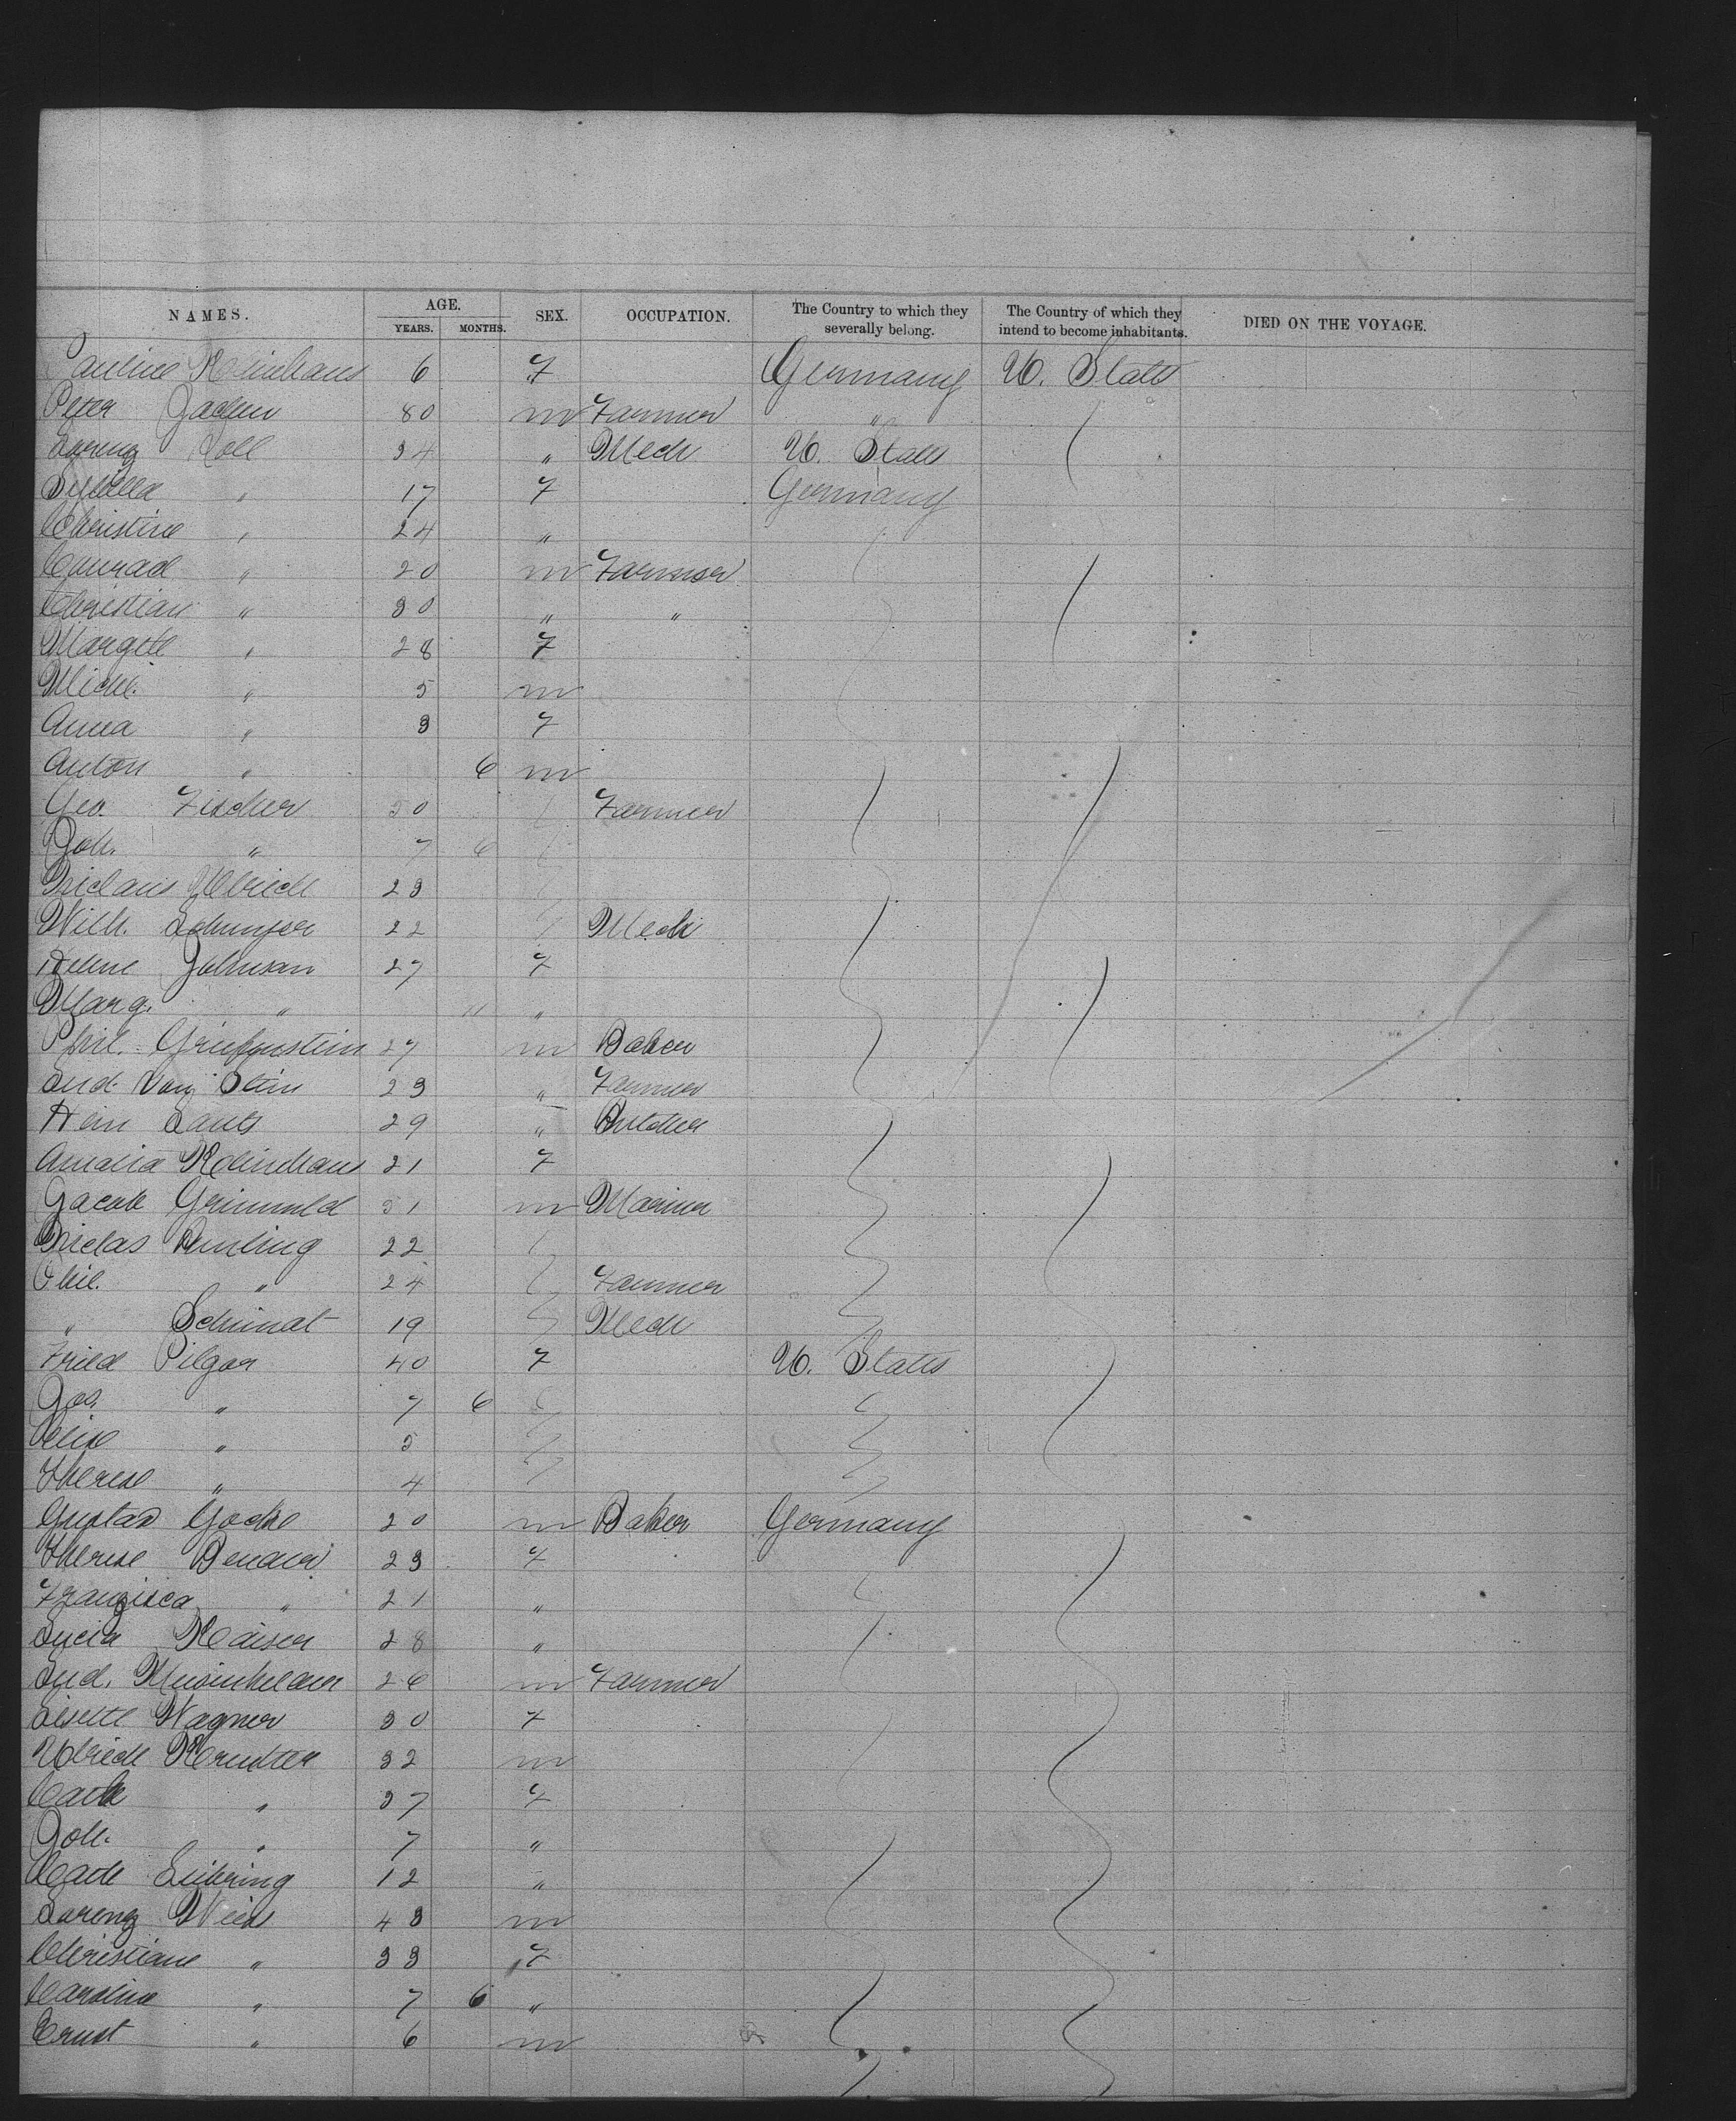 NAMES. AGE. YEARS. MONTHS. SEX. OCCUPATION. The Country to which they severally belong. The Country of which they intend to become inhabitants. DIED ON THE VOYAGE.
Pauline Kleinhans 6 F Germany U. States
Peter 80 m Farmer "
Lorenz Noll 34 " Mech U. States
Sybilla " 17 F Germany
Christine " 24 "
Conrad " 20 m Farmer
Christian " 30 " "
Margte " 28 F
Mich. " 5 m
Anna " 3 F
Anton " 6 m
Geo. Fischer 30 Farmer
Joh. " 7 6
Niclaus Ulrich 23
Wilh. 22 Mech
Helene Johnsan 27 F
Marg. " 11 "
Phil. 27 m Baker
Lud. Von Stein 23 " Farmer
Hein Lauts 29 " Butcher
Amalia Kleinhans 21 F
Jacob Grunwald 31 m Mariner
Niclas 22
Phil. " 24 Farmer
" Schmidt 19 Mech
Fried Pilger 40 F U. States
Jos. " 7 6
Elise " 5
Therese " 4
Gustav Gocke 20 m Baker Germany
Therese 23 F
Franzisca " 21 "
Lucia Kaiser 28 "
Lud. 26 m Farmer
Lisette Wagner 30 F
Ulrich 32 m
Cath " 37 F
Joh. " 7 "
Cath Liebring 12 "
Lorenz Weis 43 m
Christiane " 33 F
Caroline " 7 6 "
Ernst " 6 m